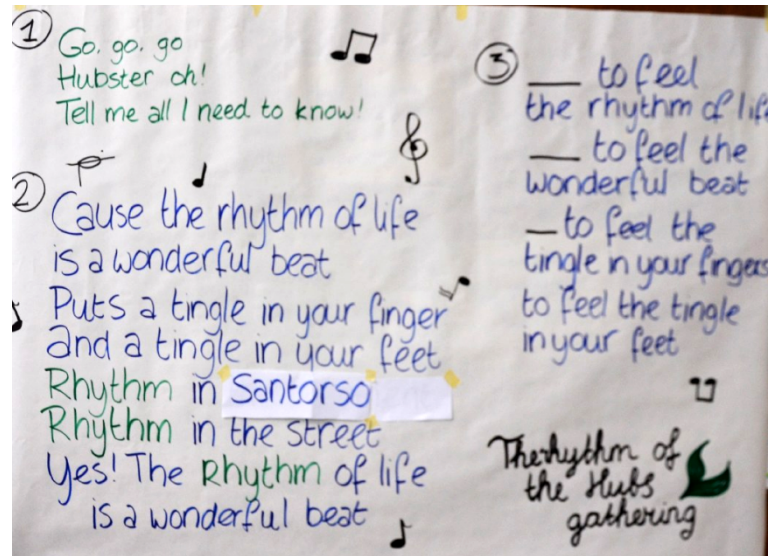 ① Go, go, go
Hubster oh!
Tell me all I need to know!
② Cause the rhythm of life
is a wonderful beat
Puts a tingle in your finger
and a tingle in your feet
Rhythm in Santorso
Rhythm in the street
Yes! The Rhythm of life
is a wonderful beat
③ ___ to feel
the rhythm of life
___ to feel the
wonderful beat
__ to feel the
tingle in your fingers
to feel the tingle
in your feet
The rhythm of
the Hubs
gathering